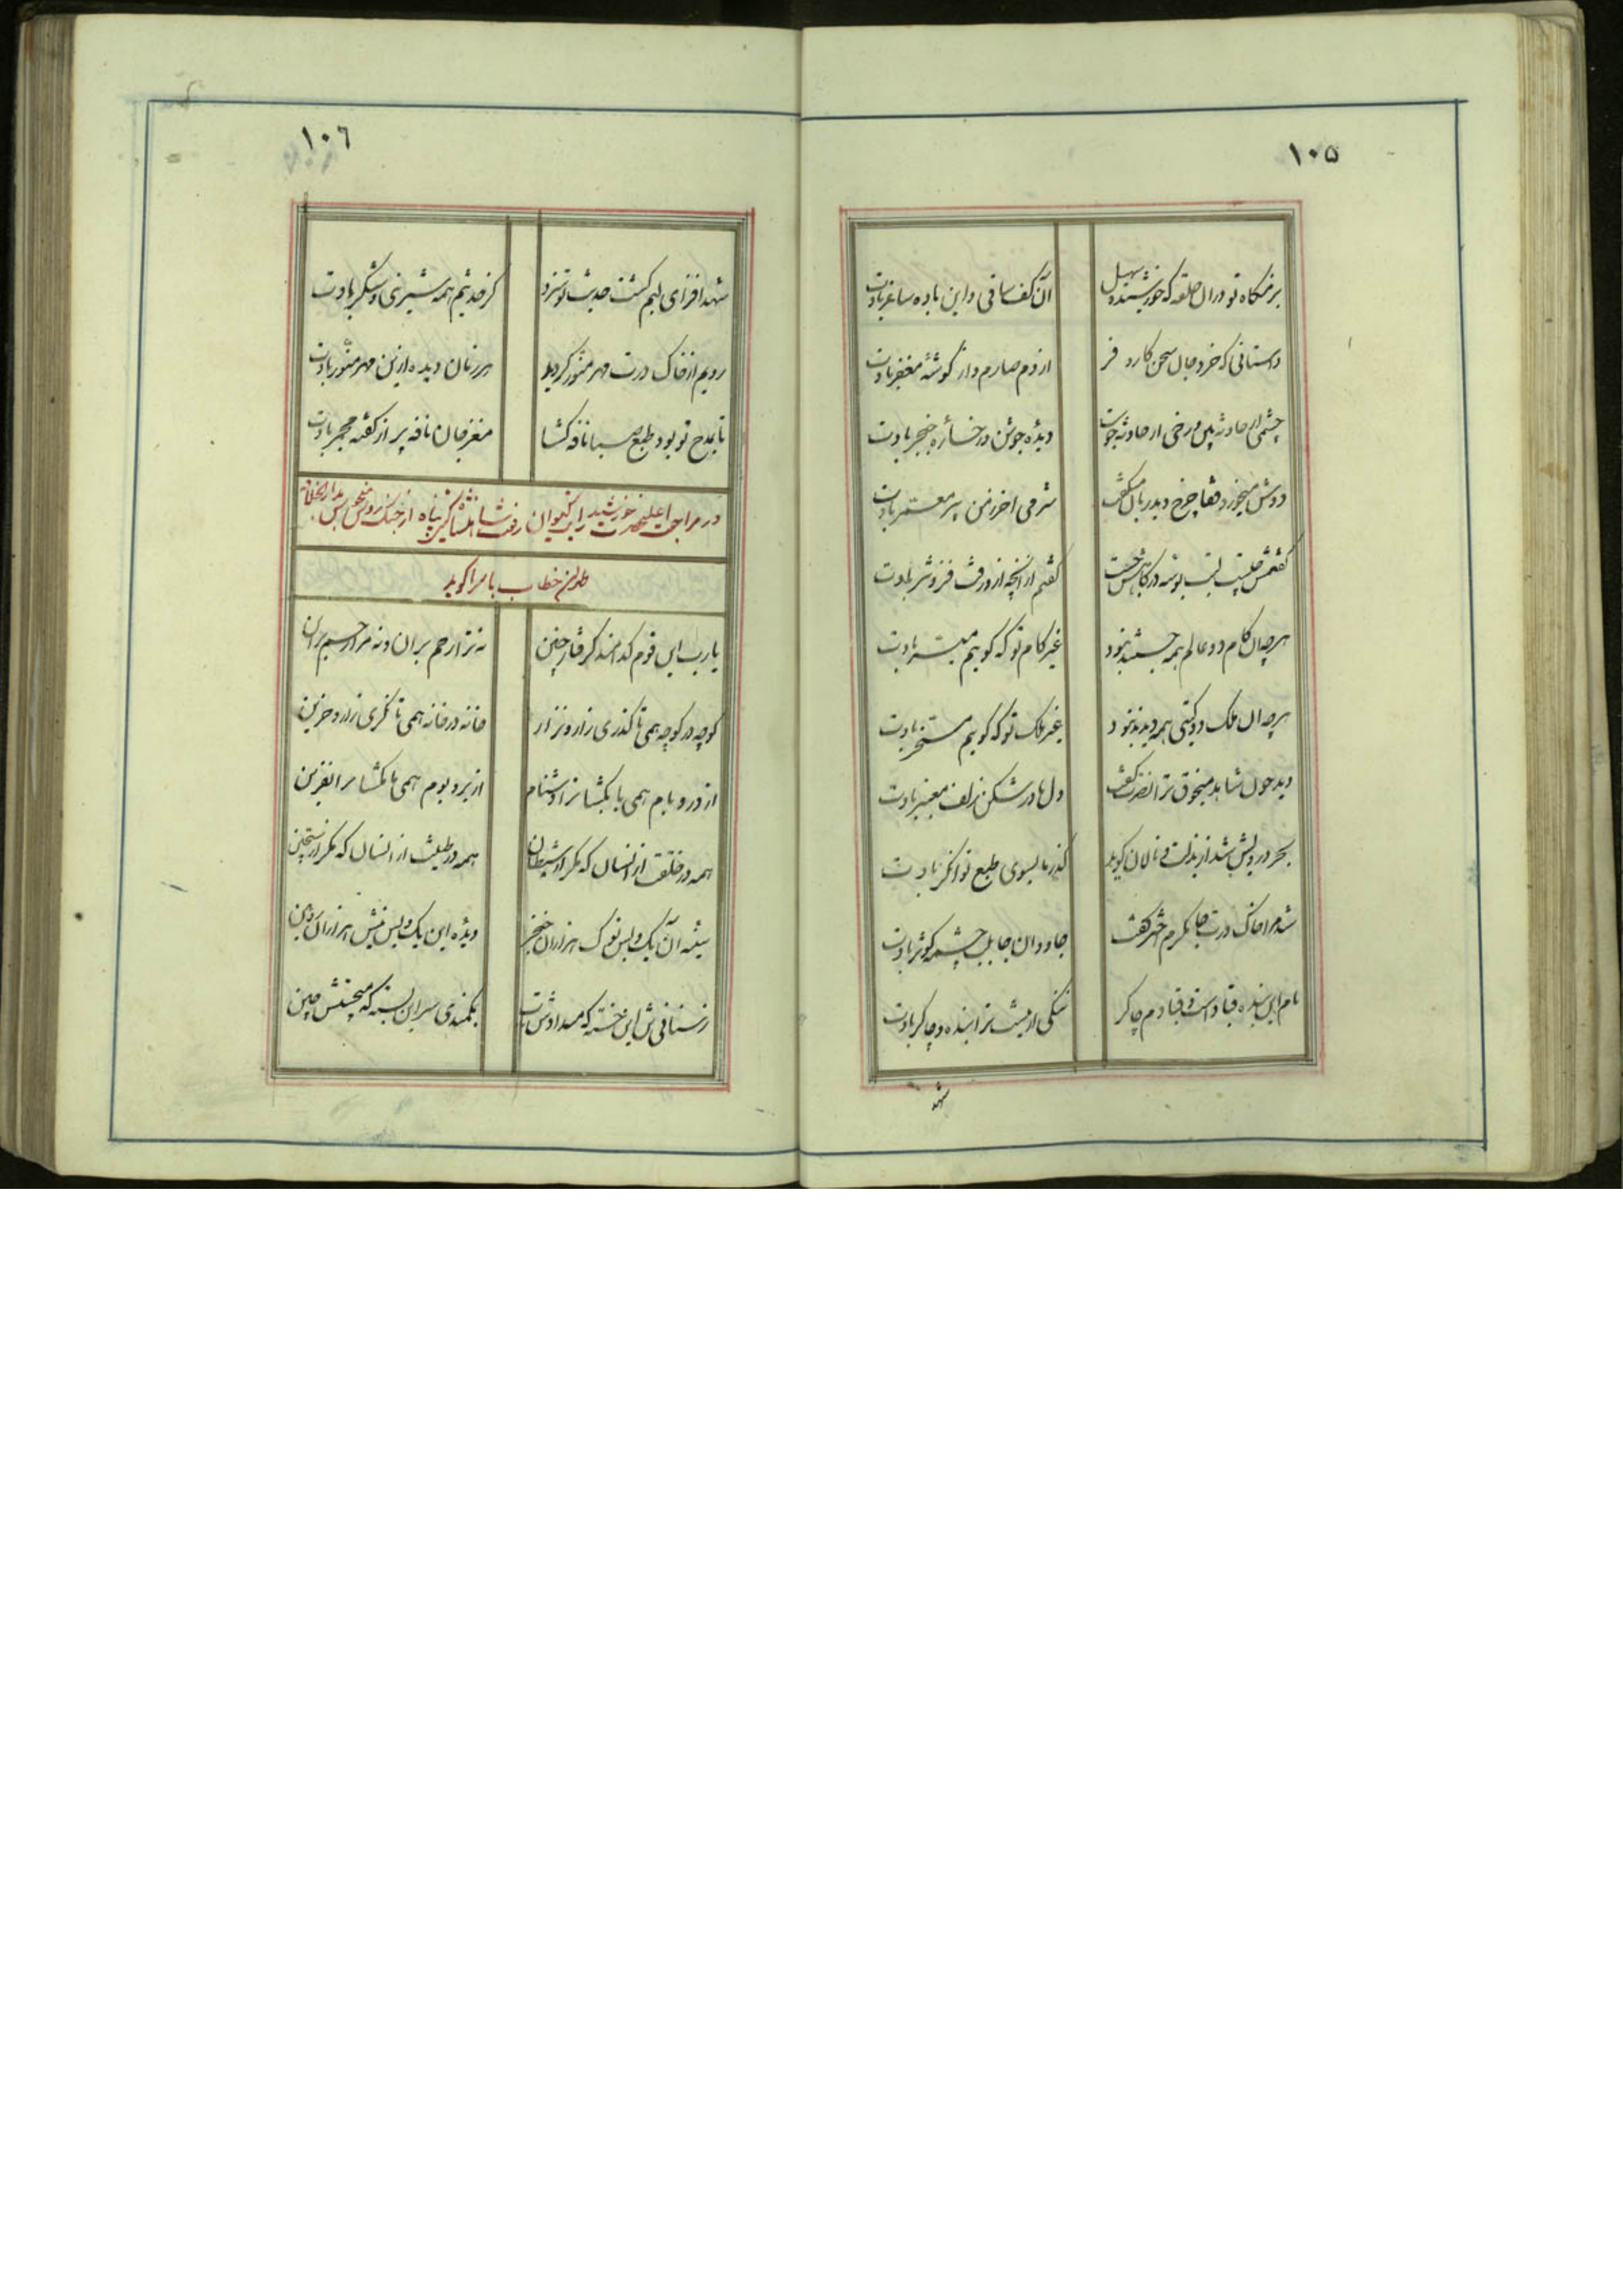 ۱۰۵
بزمگاه تو دران حلقه که خورشید و سهیل
آن کف ساقی و این باده ساغر بادت
داستانی که خرد جال سخن کارد فر
از دم صارم و از گوشهٔ مغفر بادت
چشمی از حادثه پس و رخی از حادثه
ویژه جوشن در خنجر بادت
دوش میخورد قفا چرخ و بدر
شرمی اخر زمن پیر معمر بادت
گفتمش چیست لب بوسه درگاهش گفت
گفتم از آنچه از ورت فزونتر بادت
هرچه ان کام دو عالم همه جستند نبود
غیر کام تو که گویم میسر بادت
هرچه ان ملک دو گیتی همه دیدند نبود
غیر ملک تو که گویم مسخر بادت
دید چون شاهد منجوق ترا نصرت گفت
دل ما در شکن زلف معنبر بادت
بحر درویش شد از بذلت و نالان گوید
گذر ما بسوی طبع توانگر بادت
شد مرا خاک درت جا بکرم گفت
جاودان جا بلب چشمه کوثر بادت
نام این بنده قباد است و قبادم چاکر
ننگی ار نیست ترا بنده و چاکر بادت
شهد
۱۰۶
شهد افزای لبم گشت حدیث تو سزد
کز حدیثم همه شیرینی و شکر بادت
رویم از خاک درت مهر منور گردید
هر زمان دیده ازین مهر منور بادت
تا بمدح تو بود طبع صبا نافه گشا
مغز جان نافه پر از گفته مجمر بادت
در مراجعت اعلیحضرت خورشید رایت کیوان رفعت شاهنشاه گیتی پناه از جنگ روس منحوس بدارالخلافه
طهران خطاب بامرا گوید
یا رب این قوم کدامند گرفتار چنین
نه ترا رحم بران و نه مرا رحم برین
کوچه در کوچه همی تا گذری زار و نزار
خانه در خانه همی تا نگری زار و حزین
از در و بام همی با بگشا ترا دشنام
از بر و بوم همی با بگشا مرا نفرین
همه در خلقت از انسان که مکرر شیطان
همه در طینت از انسان که مکرر سجین
سینه آن یک و بس نوک هزاران خنجر
ویژه این یک و بس نیش هزاران زوبین
زسنانی ش این خسته که میدادش تاب
بکمندی سر این بسته که میجستش چین